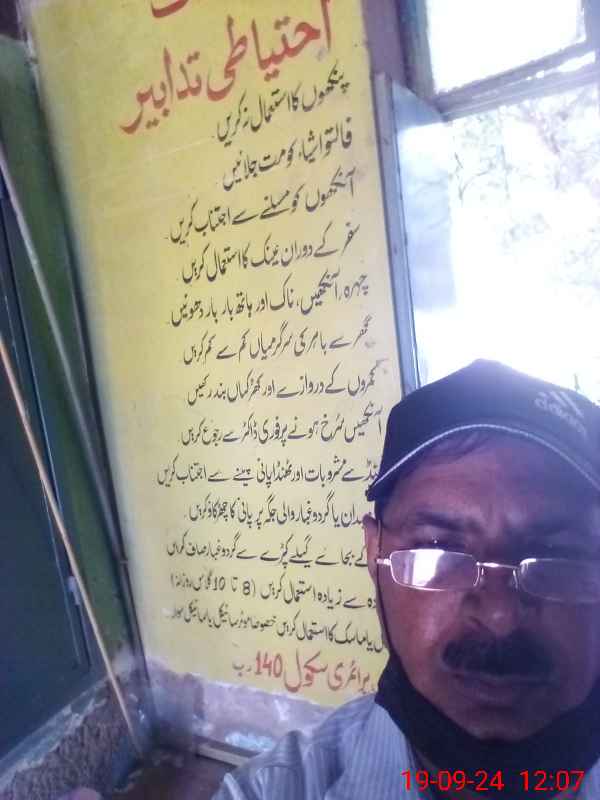 احتیاطی تدابیر
پنکھوں کا استعمال نہ کریں۔
فالتو اشیاء کو مت جلائیں
آنکھوں کو مسلنے سے اجتناب کریں۔
سفر کے دوران عینک کا استعمال کریں۔
چہرہ، آنکھیں، ناک اور ہاتھ بار بار دھوئیں۔
گھر سے باہر کی سرگرمیاں کم سے کم کریں
کمروں کے دروازے اور کھڑکیاں بند رکھیں
آنکھیں سُرخ ہونے پر فوری ڈاکٹر سے رجوع کریں
ٹھنڈے مشروبات اور ٹھنڈا پانی پینے سے اجتناب کریں
یا گرد و غبار والی جگہ پر پانی کا چھڑکاؤ کریں۔
کے بجائے گیلے کپڑے سے گرد و غبار صاف کریں
سے زیادہ استعمال کریں (8 تا 10 گلاس روزانہ)
یا ماسک کا استعمال کریں خصوصاً موٹر سائیکل یا سائیکل سوار۔
پرائمری سکول 140 رب
adidas
19-09-24 12:07